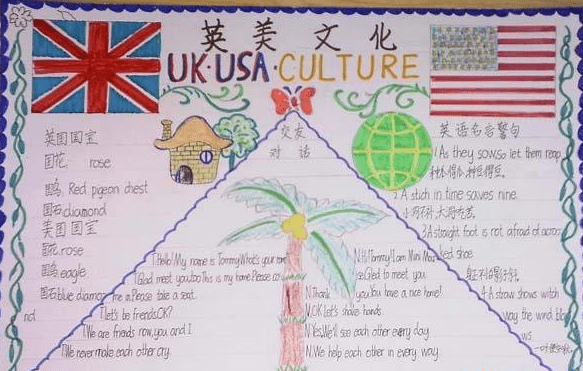 英 美 文 化
UK·USA·CULTURE
英国国宝
国花 rose
国鸟 Red pigeon chest
国石 diamond
美国国宝
国花 rose
国鸟 eagle
国石 blue diamond
交友
对话
T:Hello! My name is Tommy What's your
T:Glad meet you,too This is my home. Please
me in. Please take a seat.
T:Let's be friends,OK?
T:We are friends now, you and I
T:We never make each other cry.
N:Hi! Tommy I am Mini
Glad to meet you
N:Thank you You have a nice home!
N:OK Let's shake hands
N:Yes, We'll see each other every day
N:We help each other in every way.
英语名言警句
1 As they sow,so let them reap
种瓜得瓜,种豆得豆。
2 A stich in time saves nine
小洞不补,大洞吃苦。
3 A straight foot is not afraid of a crooked shoe
4 A straw shows witch
way the wind blows